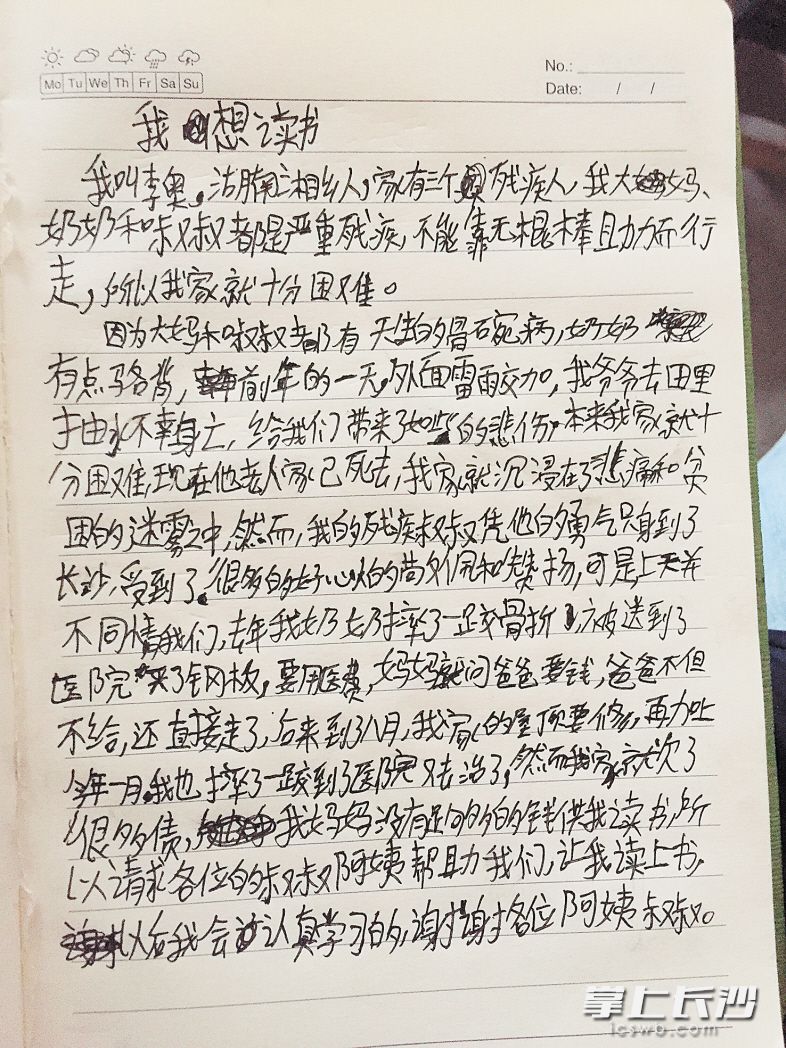 Mo Tu We Th Fr Sa Su
No.:
Date: / /
我想读书
我叫李奥,湖南湘乡人,家有三个残疾人,我大妈、
奶奶和叔叔都是严重残疾,不能靠无棍棒助力而行
走,所以我家就十分困难。
因为大妈和叔叔都有天生的骨碗病,奶奶
有点骆背,前年的一天,外面雷雨交加,我爷爷去田里
抽水不幸身亡,给我们带来了如此的悲伤,本来我家就十
分困难,现在他老人家已死去,我家就沉浸在了悲痛和贫
困的迷雾之中,然而,我的残疾叔叔凭他的勇气只身到了
长沙,受到了很多的好心人的苟佩和赞扬,可是上天并
不同情我们,去年我奶奶摔了一跤骨折,被送到了
医院买了钢板,要用医费,妈妈就问爸爸要钱,爸爸不但
不给,还直接走了,后来到了八月,我家的屋顶要修,再加上
今年一月我也摔了一跤到了医院又去治了,然而我家就欠了
很多债,我妈妈没有足够的钱供我读书,所
以请求各位的叔叔阿姨帮助我们,让我读上书,
以后我会认真学习的,谢谢各位阿姨叔叔。
掌上长沙
icswb.com